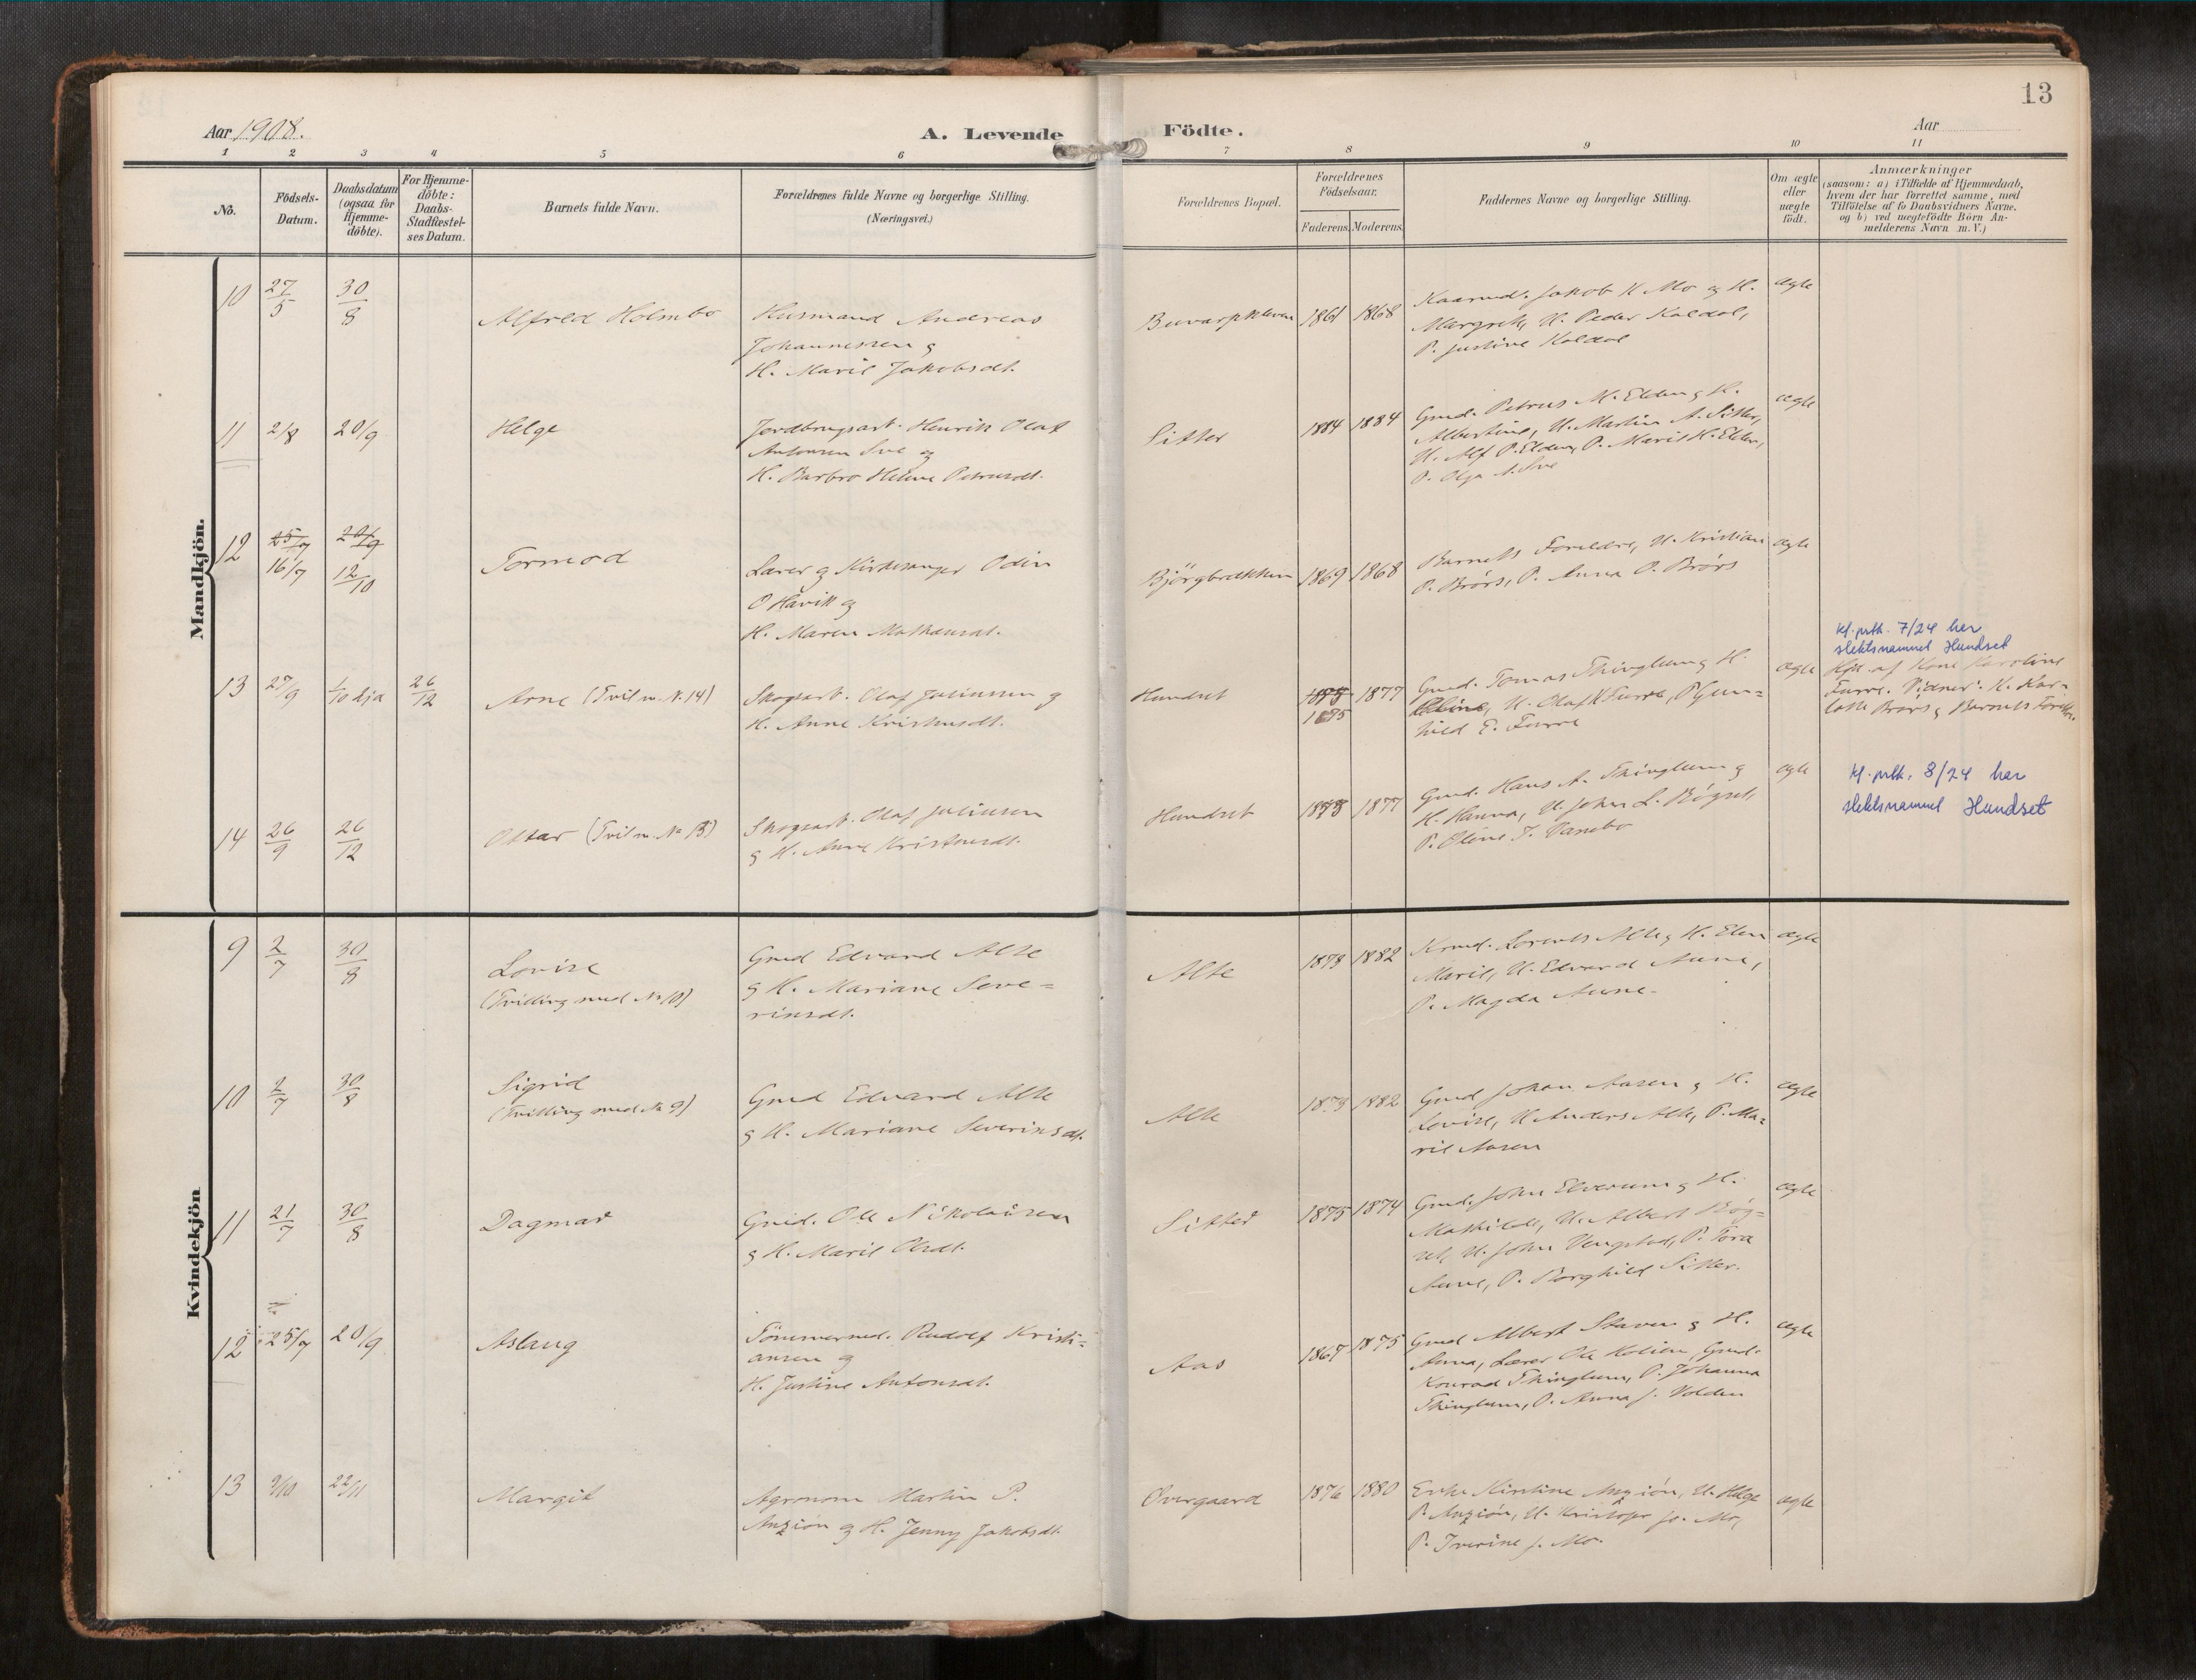 13
Aar 1908.
A. Levende Födte.
Aar
1 2 3 4 5 6 7 8 9 10 11
No.
Födsels-Datum.
Daabsdatum (ogsaa for Hjemme-döbte).
For Hjemme-döbte: Daabs-Stadfæstel-ses Datum.
Barnets fulde Navn.
Forældrenes fulde Navne og borgerlige Stilling.
(Næringsvei.)
Forældrenes Bopæl.
Forældrenes Födselsaar.
Faderens. Moderens.
Faddernes Navne og borgerlige Stilling.
Om ægte eller uægte födt.
Anmærkninger
(saasom: a) i Tilfælde af Hjemmedaab,
hvem der har forrettet samme, med
Tilföielse af to Daabsvidners Navne,
og b) ved uægtefödte Börn An-
melderens Navn m. V.)
Mandkjön.
10 27/5 30/8 Alfred Holmbo
Husmand Andreas
Johannessen og
H. Marit Jakobsdt.
1861 1868
Kaarmd. Jakob K. Mo og H.
Margrete, U. Peder Koldal,
P. Justine Koldal
ægte
11 2/8 20/9 Helge
Jordbrugsarb. Henrik Olaf
Antonsen Sve og
H. Barbro Helene Petrusdt.
Sitter
1884 1884
Gmd. Petrus M. Elden og H.
Albertine, U. Martin A. Sitter,
U. Alf P. Elden, P. Marit K. Elden,
P. Olga A. Sve
ægte
12 25/7 20/9
16/7 12/10
Tormod
Lærer og Kirkesanger Odin
O Havik og
H. Maren Matheusdt.
Björgbrækken
1869 1868
Barnets Foreldre, U. Kristian
O. Brörs, P. Anna O. Brörs
ægte
13 27/9 1/10 hja 26/12 Arne (Tvil m. N. 14)
Skogsarb. Olaf Juliussen og
H. Anne Kristensdt.
Hundset
1878 1877
Gmd. Tomas Thinglum og H.
U. Olaf K Furre, P Gun=
hild E. Furre
ægte
Kf. prth. 7/24 har
slektsnamnet Hundset
Hjd. af Kone Karoline
Furre. Vidner: K. Kar-
lotte Brörs og Barnets Foreldre.
14 26/9 26/12 Ottar (Tvil m. No 13)
Skogsarb. Olaf Juliussen
og H. Anne Kristensdt.
Hundset
1878 1877
Gmd. Hans A. Thinglum og
H. Hanna, U. John L. Bögset,
P. Oline T. Vanebo
ægte
Kf. prth. 8/24 har
slektsnamnet Hundset
Kvindekjön
9 2/7 30/8 Lovise
(Tvilling med No 10)
Gmd Edvard Alte
og H. Mariane Seve=
rinsdt.
Alte
1879 1882
Kmd. Lorents Alte og H. Elen
Marit, U. Edvard Aune,
P. Magda Aune.
ægte
10 2/7 30/8 Sigrid
(Tvilling med No 9)
Gmd Edvard Alte
og H. Mariane Severinsdt.
Alte
1879 1882
Gmd Johan Aasen og H.
Lovise, U Anders Alte, P. Ma=
rit Aasen
ægte
11 21/7 30/8 Dagmar
Gmd. Ole Nikolaisen
og H. Marit Olsdt.
Sitter
1875 1874
Gmd. John Elverum og H.
Mathilde, U. Albert Bög=
set, U. John Vengstad, P. Tora
Aune, P. Borghild Sitter.
ægte
12 25/7 20/9 Aslaug
Tömmermd. Rudolf Kristi=
ansen og
H. Justine Antonsdt.
Aas
1867 1875
Gmd Albert Staven og H.
Anna, Lærer Ole Holien, Gmd.
Konrad Thinglum, P. Johanna
Thinglum, P. Anna J. Volden
ægte
13 9/10 22/11 Margit
Agronom Martin P.
Anzion og H. Jenny Jakobsdt.
Overgaard
1876 1880
Enke Kirstine Anzion, U. Helge
P. Anzion, U. Kristofer Jo. Mo,
P. Iverine J. Mo.
ægte